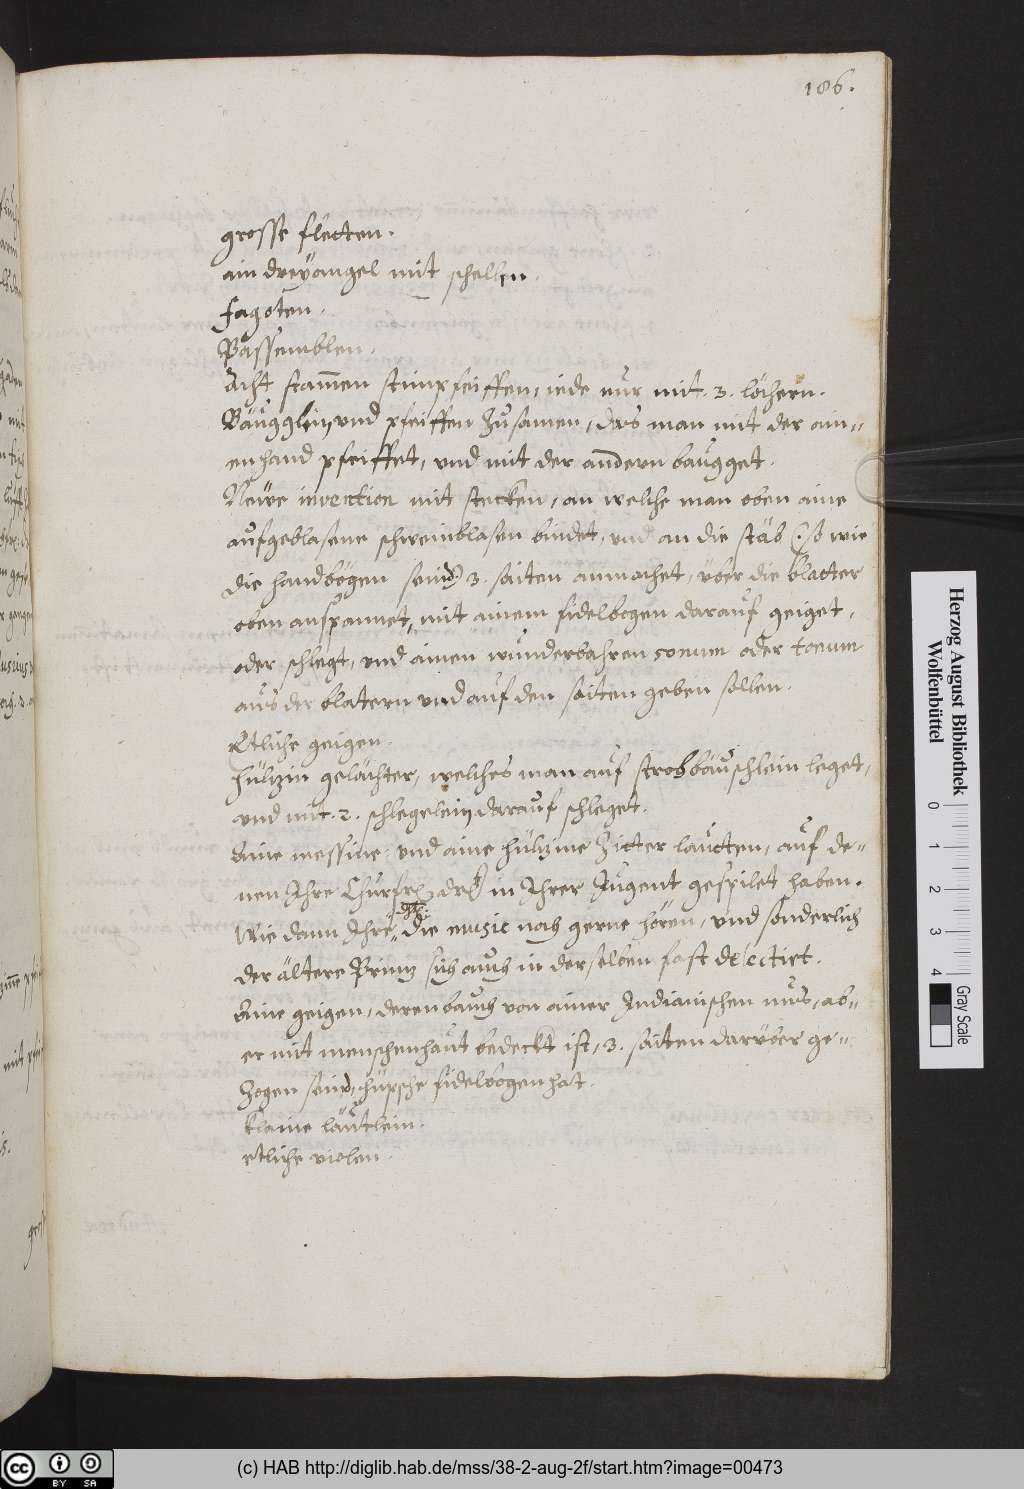 186.
grosse fletten.
ain dreÿangel mit schellen.
Fagoten.
Passemblen.
Acht stamen stimpfeiffen, iede nur mit. 3. löchern.
Bäugglin, und pfeiffen zusamen, das man mit der ain„
en hand pfeiffet, und mit der andern baugget.
Newe invention mit stecken, an welche man oben aine
aufgeblasene schweinblasen bindet, und an die stäb (: so wie
die handbögen seind:) 3. saiten anmachet, über die blatter
oben anspannet, mit ainem fidelbogen darauf geiget,
oder schlegt, und ainen wunderbahren sonum oder tonum
aus der blatern und auf den saiten geben sollen.
Etliche geigen.
Hültzin gelächter, welches man auf strobbäuschlein leget,
und mit. 2. schlegelein darauf schleget.
Aine messine: und aine hültzine Zitter lautten, auf de„
nen Ihre Churfr. drt. in Ihrer Jugent gespilet haben.
Wie dann Ihre dt: die music noch gerne hören, und sonderlich
der ältere Printz sich auch in derselben fast delectirt.
Aine geigen, deren bauch von ainer Indianischen nus, ab„
er mit menschenhaut bedeckt ist, 3. saiten darüber ge„
zogen seind, hüpsche fidelbogen hat.
Klaine läutlein.
etliche violen.
Herzog August Bibliothek
Wolfenbüttel
0 1 2 3 4
Gray Scale
cc BY SA
(c) HAB http://diglib.hab.de/mss/38-2-aug-2f/start.htm?image=00473